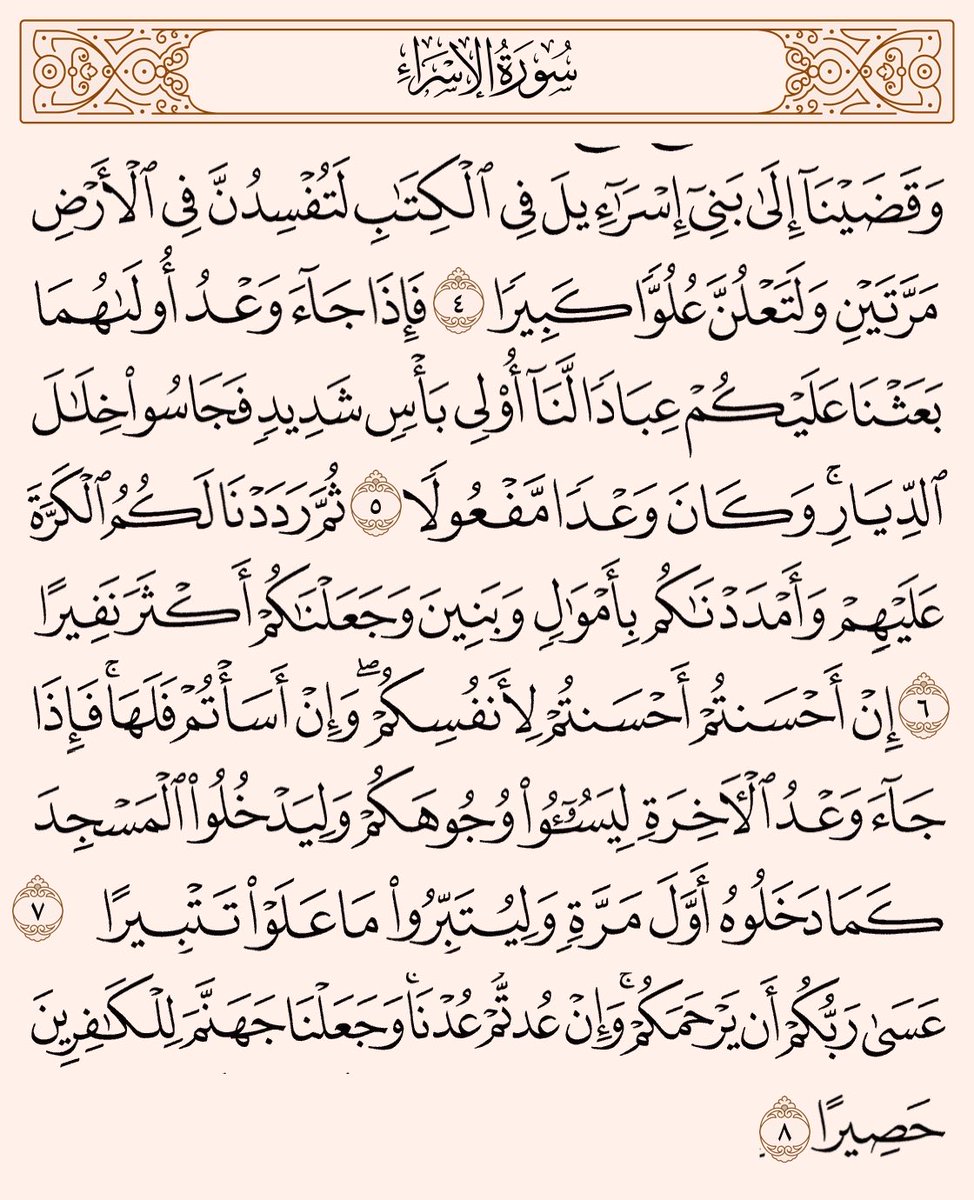 سُورَةُ الإِسْرَاءِ
وَقَضَيْنَآ إِلَىٰ بَنِىٓ إِسْرَٰٓءِيلَ فِى ٱلْكِتَٰبِ لَتُفْسِدُنَّ فِى ٱلْأَرْضِ
مَرَّتَيْنِ وَلَتَعْلُنَّ عُلُوًّا كَبِيرًا ٤ فَإِذَا جَآءَ وَعْدُ أُولَىٰهُمَا
بَعَثْنَا عَلَيْكُمْ عِبَادًا لَّنَآ أُو۟لِى بَأْسٍ شَدِيدٍ فَجَاسُوا۟ خِلَٰلَ
ٱلدِّيَارِ ۚ وَكَانَ وَعْدًا مَّفْعُولًا ٥ ثُمَّ رَدَدْنَا لَكُمُ ٱلْكَرَّةَ
عَلَيْهِمْ وَأَمْدَدْنَٰكُم بِأَمْوَٰلٍ وَبَنِينَ وَجَعَلْنَٰكُمْ أَكْثَرَ نَفِيرًا
٦ إِنْ أَحْسَنتُمْ أَحْسَنتُمْ لِأَنفُسِكُمْ ۖ وَإِنْ أَسَأْتُمْ فَلَهَا ۚ فَإِذَا
جَآءَ وَعْدُ ٱلْءَاخِرَةِ لِيَسُۥٓـُٔوا۟ وُجُوهَكُمْ وَلِيَدْخُلُوا۟ ٱلْمَسْجِدَ
كَمَا دَخَلُوهُ أَوَّلَ مَرَّةٍ وَلِيُتَبِّرُوا۟ مَا عَلَوْا۟ تَتْبِيرًا ٧
عَسَىٰ رَبُّكُمْ أَن يَرْحَمَكُمْ ۚ وَإِنْ عُدتُّمْ عُدْنَا ۘ وَجَعَلْنَا جَهَنَّمَ لِلْكَٰفِرِينَ
حَصِيرًا ٨